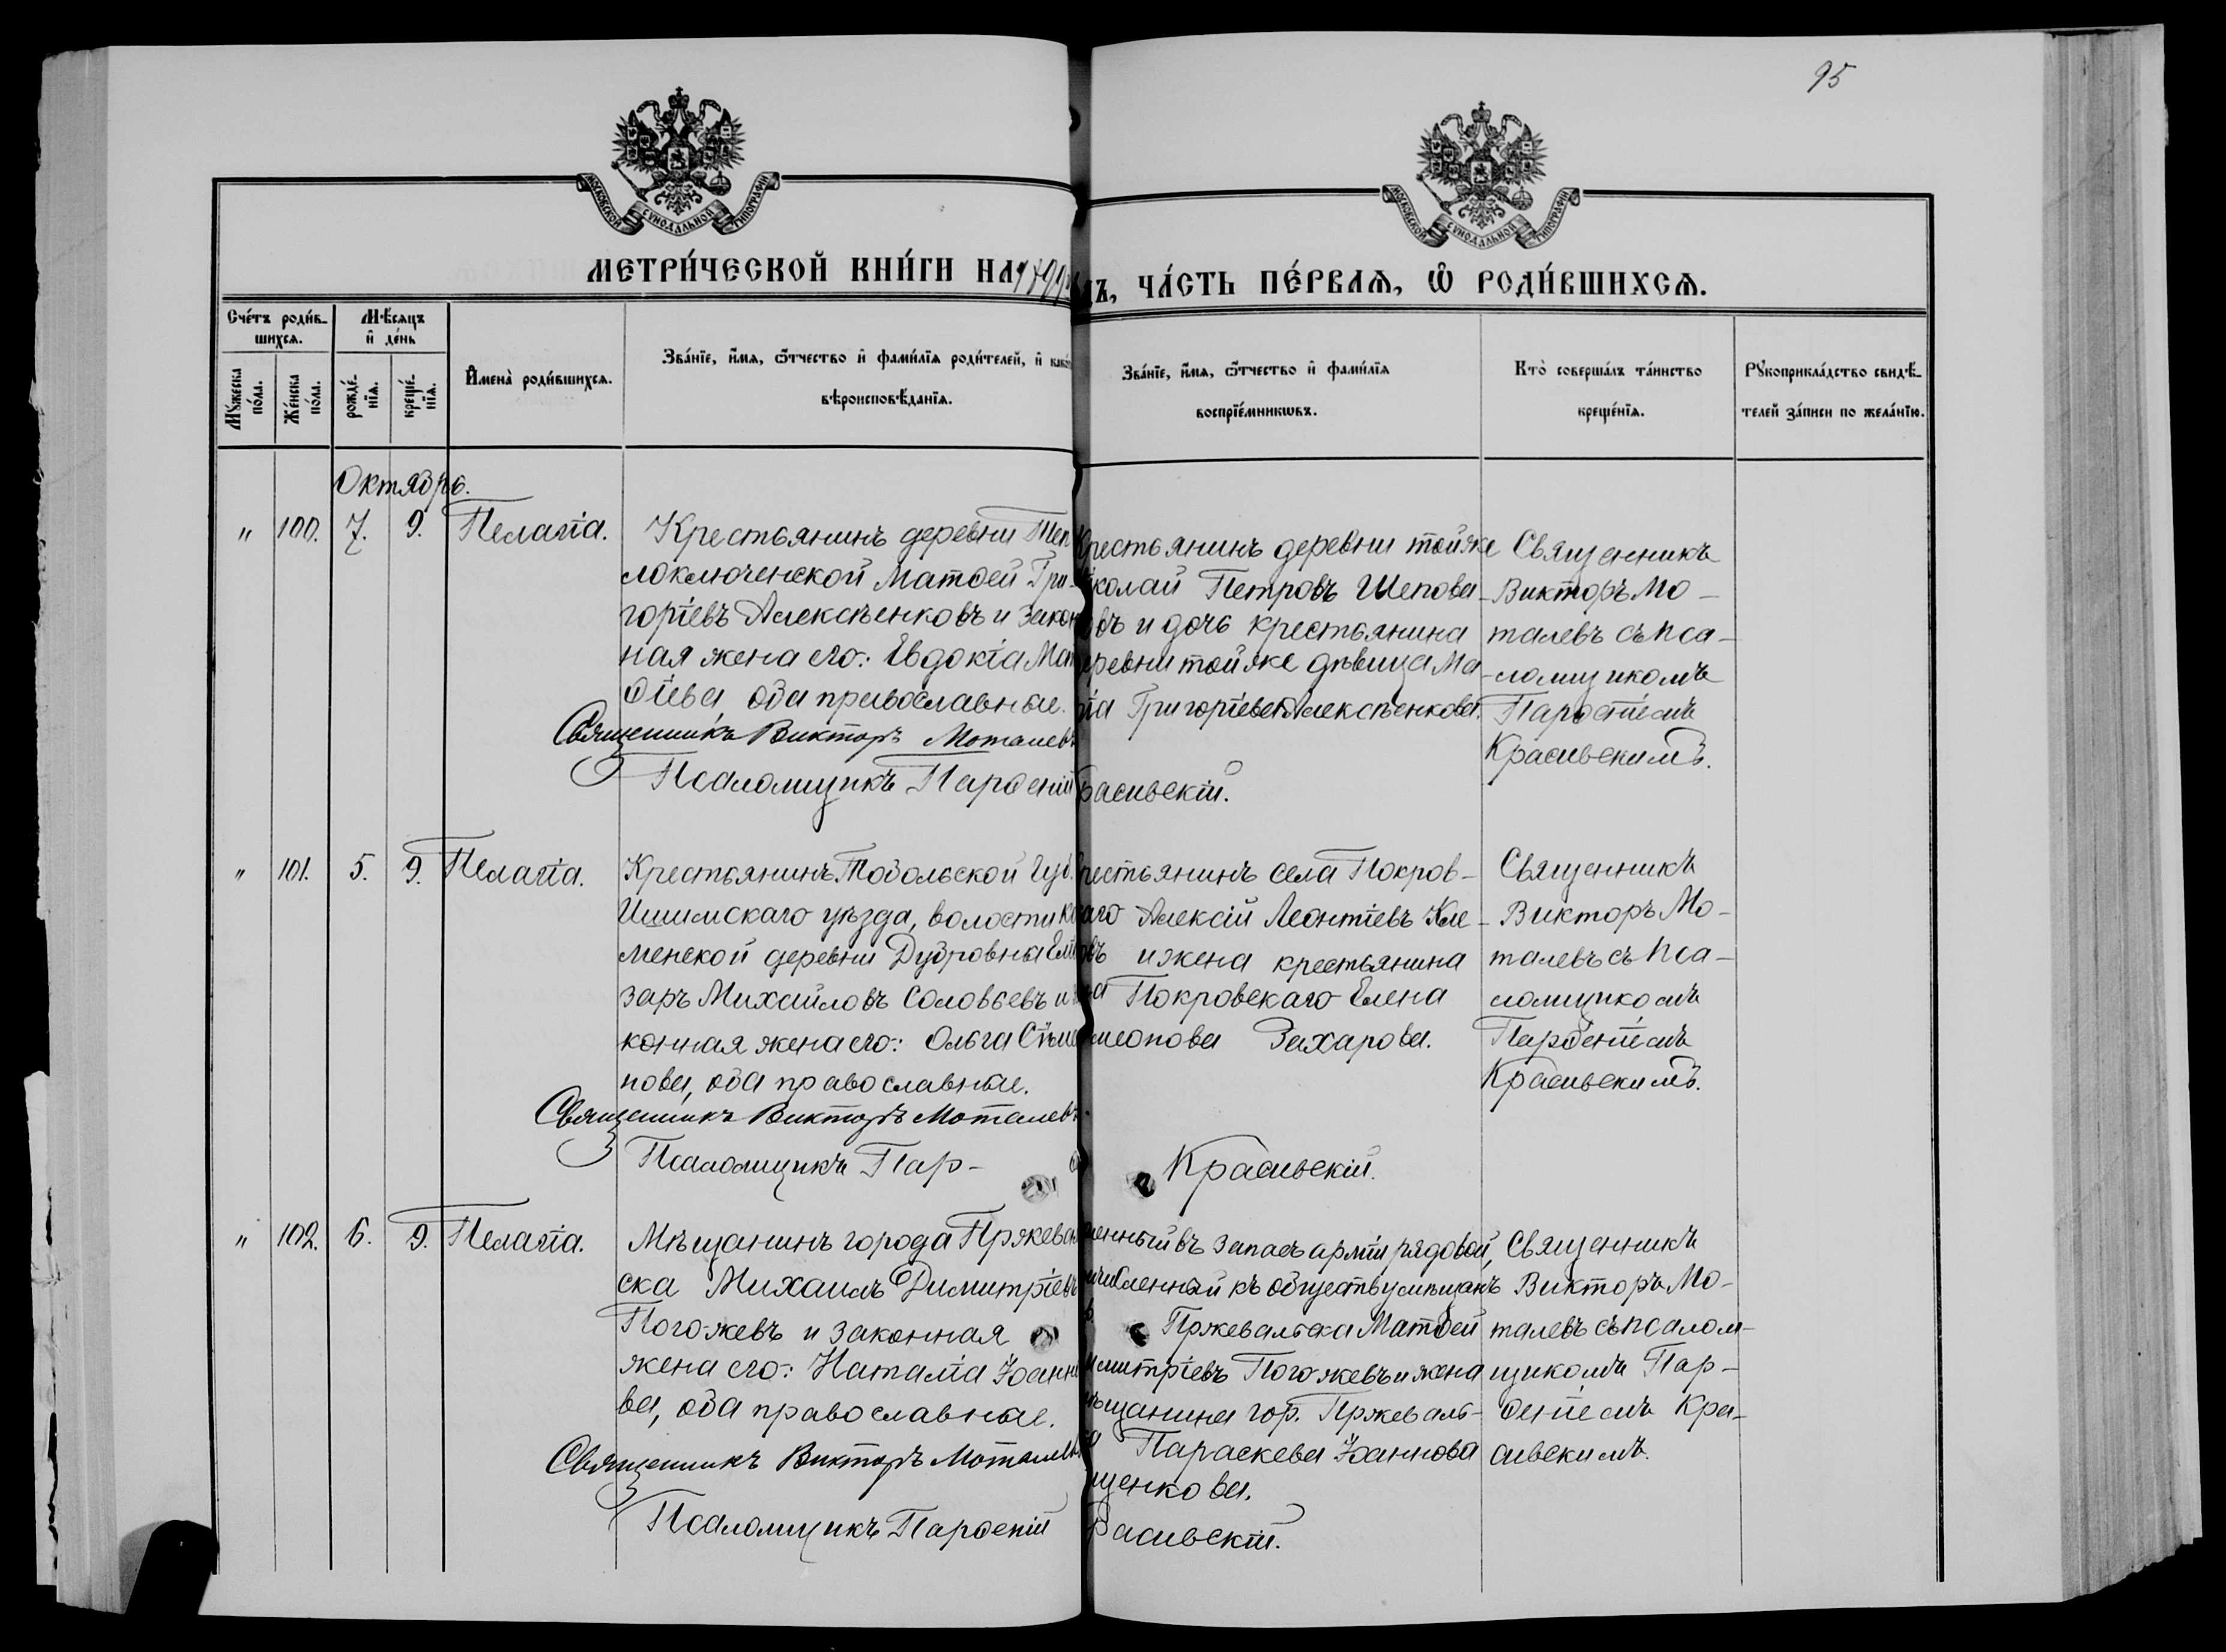 95
МОСКОВСКОЙ СѴНОДАЛЬНОЙ ТИПОГРАФІИ
МОСКОВСКОЙ СѴНОДАЛЬНОЙ ТИПОГРАФІИ
МЕТРИ́ЧЕСКОЙ КНИ́ГИ НА 1899
ЧА́СТЬ ПЕ́РВАѦ, Ѡ҆ РОДИ́ВШИХСѦ.
Сче́тъ роди́в-
шихсѧ.
Мѣ́сѧцъ
и҆ де́нь
Мꙋ́жеска
по́ла.
Же́нска
по́ла.
рожде́-
нїѧ.
креще́-
нїѧ.
И҆мена̀ роди́вшихсѧ.
Зва́нїе, и҆́мѧ, ѻ҆́тчество и҆ фами́лїѧ роди́телей, и҆
вѣроисповѣ́данїѧ.
Зва́нїе, и҆́мѧ, ѻ҆́тчество и҆ фами́лїѧ
воспрїе́мникѡвъ.
Кто̀ соверша́лъ та́инство
креще́нїѧ.
Рꙋкоприкла́дство свидѣ́-
телей за́писи по жела́нїю.
Октябрь.
" 100. 7. 9. Пелагіа.
Крестьянинъ деревни Теп
лоключенской Матѳей Гри-
горіевъ Алексѣенковъ и закон
ная жена его: Евдокіа Мат
ѳіева, оба православные.
Священникъ Викторъ Моталевъ
Псаломщикъ Парѳеній
Крестьянинъ деревни тойже
колай Петровъ Шепова-
въ и дочь крестьянина
еревни тойже дѣвица Ма-
ріа Григоріева Алексѣенкова.
расивскій.
Священникъ
Викторъ Мо-
талевъ съ пса-
ломщикомъ
Парѳеніемъ
Красивскимъ.
" 101. 5. 9. Пелагіа.
Крестьянинъ Тобольской Губ.
Ишимскаго уѣзда, волости К
менской деревни Дубровна Ели
заръ Михайловъ Соловьевъ и
конная жена его: Ольга Сѵме
нова, оба православные.
Священникъ Викторъ Моталевъ.
Псаломщикъ Пар-
рестьянинъ села Покров-
аго Алексій Леонтіевъ Кле-
въ и жена крестьянина
ла Покровскаго Елена
меонова Захарова.
Красивскій.
Священникъ
Викторъ Мо-
талевъ съ пса-
ломщикомъ
Парѳеніемъ
Красивскимъ.
" 102. 6. 9. Пелагіа.
Мѣщанинъ города Пржеваль
ска Михаилъ Димитріевъ
Погожевъ и законная
жена его: Наталіа Іоанно
ва, оба православные.
Священникъ Викторъ Моталевъ
Псаломщикъ Парѳеній
ленный въ запасъ арміи рядовой,
ичисленный къ обществу мѣщанъ
Пржевальска Матѳей
имитріевъ Погожевъ и жена
ѣщанина гор. Пржеваль-
Параскева Іоаннова
щенкова.
расивскій.
Священникъ
Викторъ Мо-
талевъ съ псалом-
щикомъ Пар-
ѳеніемъ Кра-
сивскимъ.